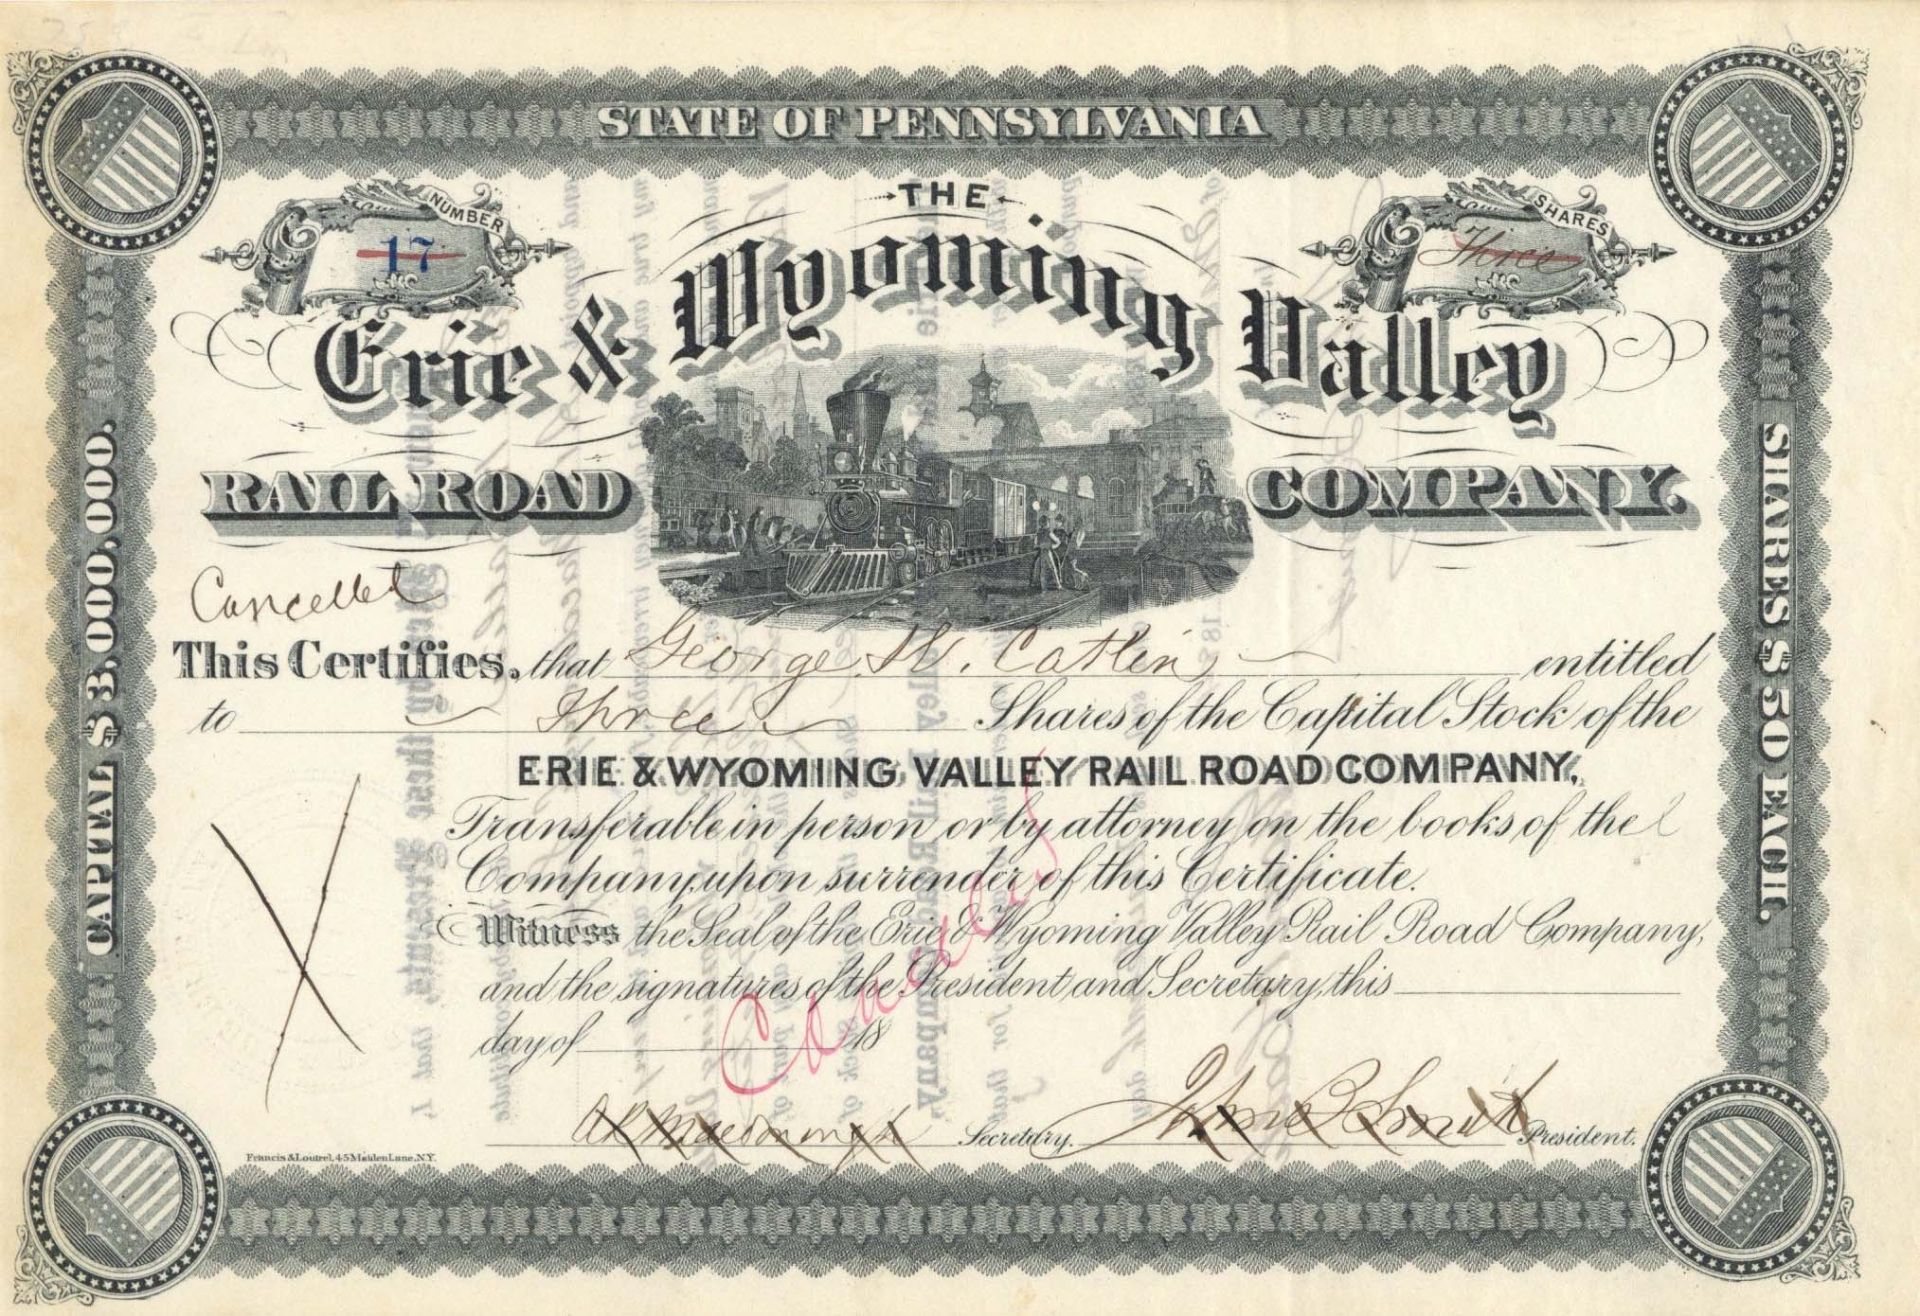 STATE OF PENNSYLVANIA
NUMBER
17
THE
SHARES
Three
Erie & Wyoming Valley
RAIL ROAD COMPANY.
CAPITAL $3,000,000.
SHARES $50 EACH
Cancelled
This Certifies, that George W. Catlin entitled
to Three Shares of the Capital Stock of the
ERIE & WYOMING VALLEY RAIL ROAD COMPANY,
Transferable in person or by attorney on the books of the
Company, upon surrender of this Certificate.
Witness the Seal of the Erie & Wyoming Valley Rail Road Company,
and the signatures of the President and Secretary, this
day of 18
Cancelled
Secretary. John B Smith President.
Francis & Loutrel, 45 Maiden Lane, N.Y.